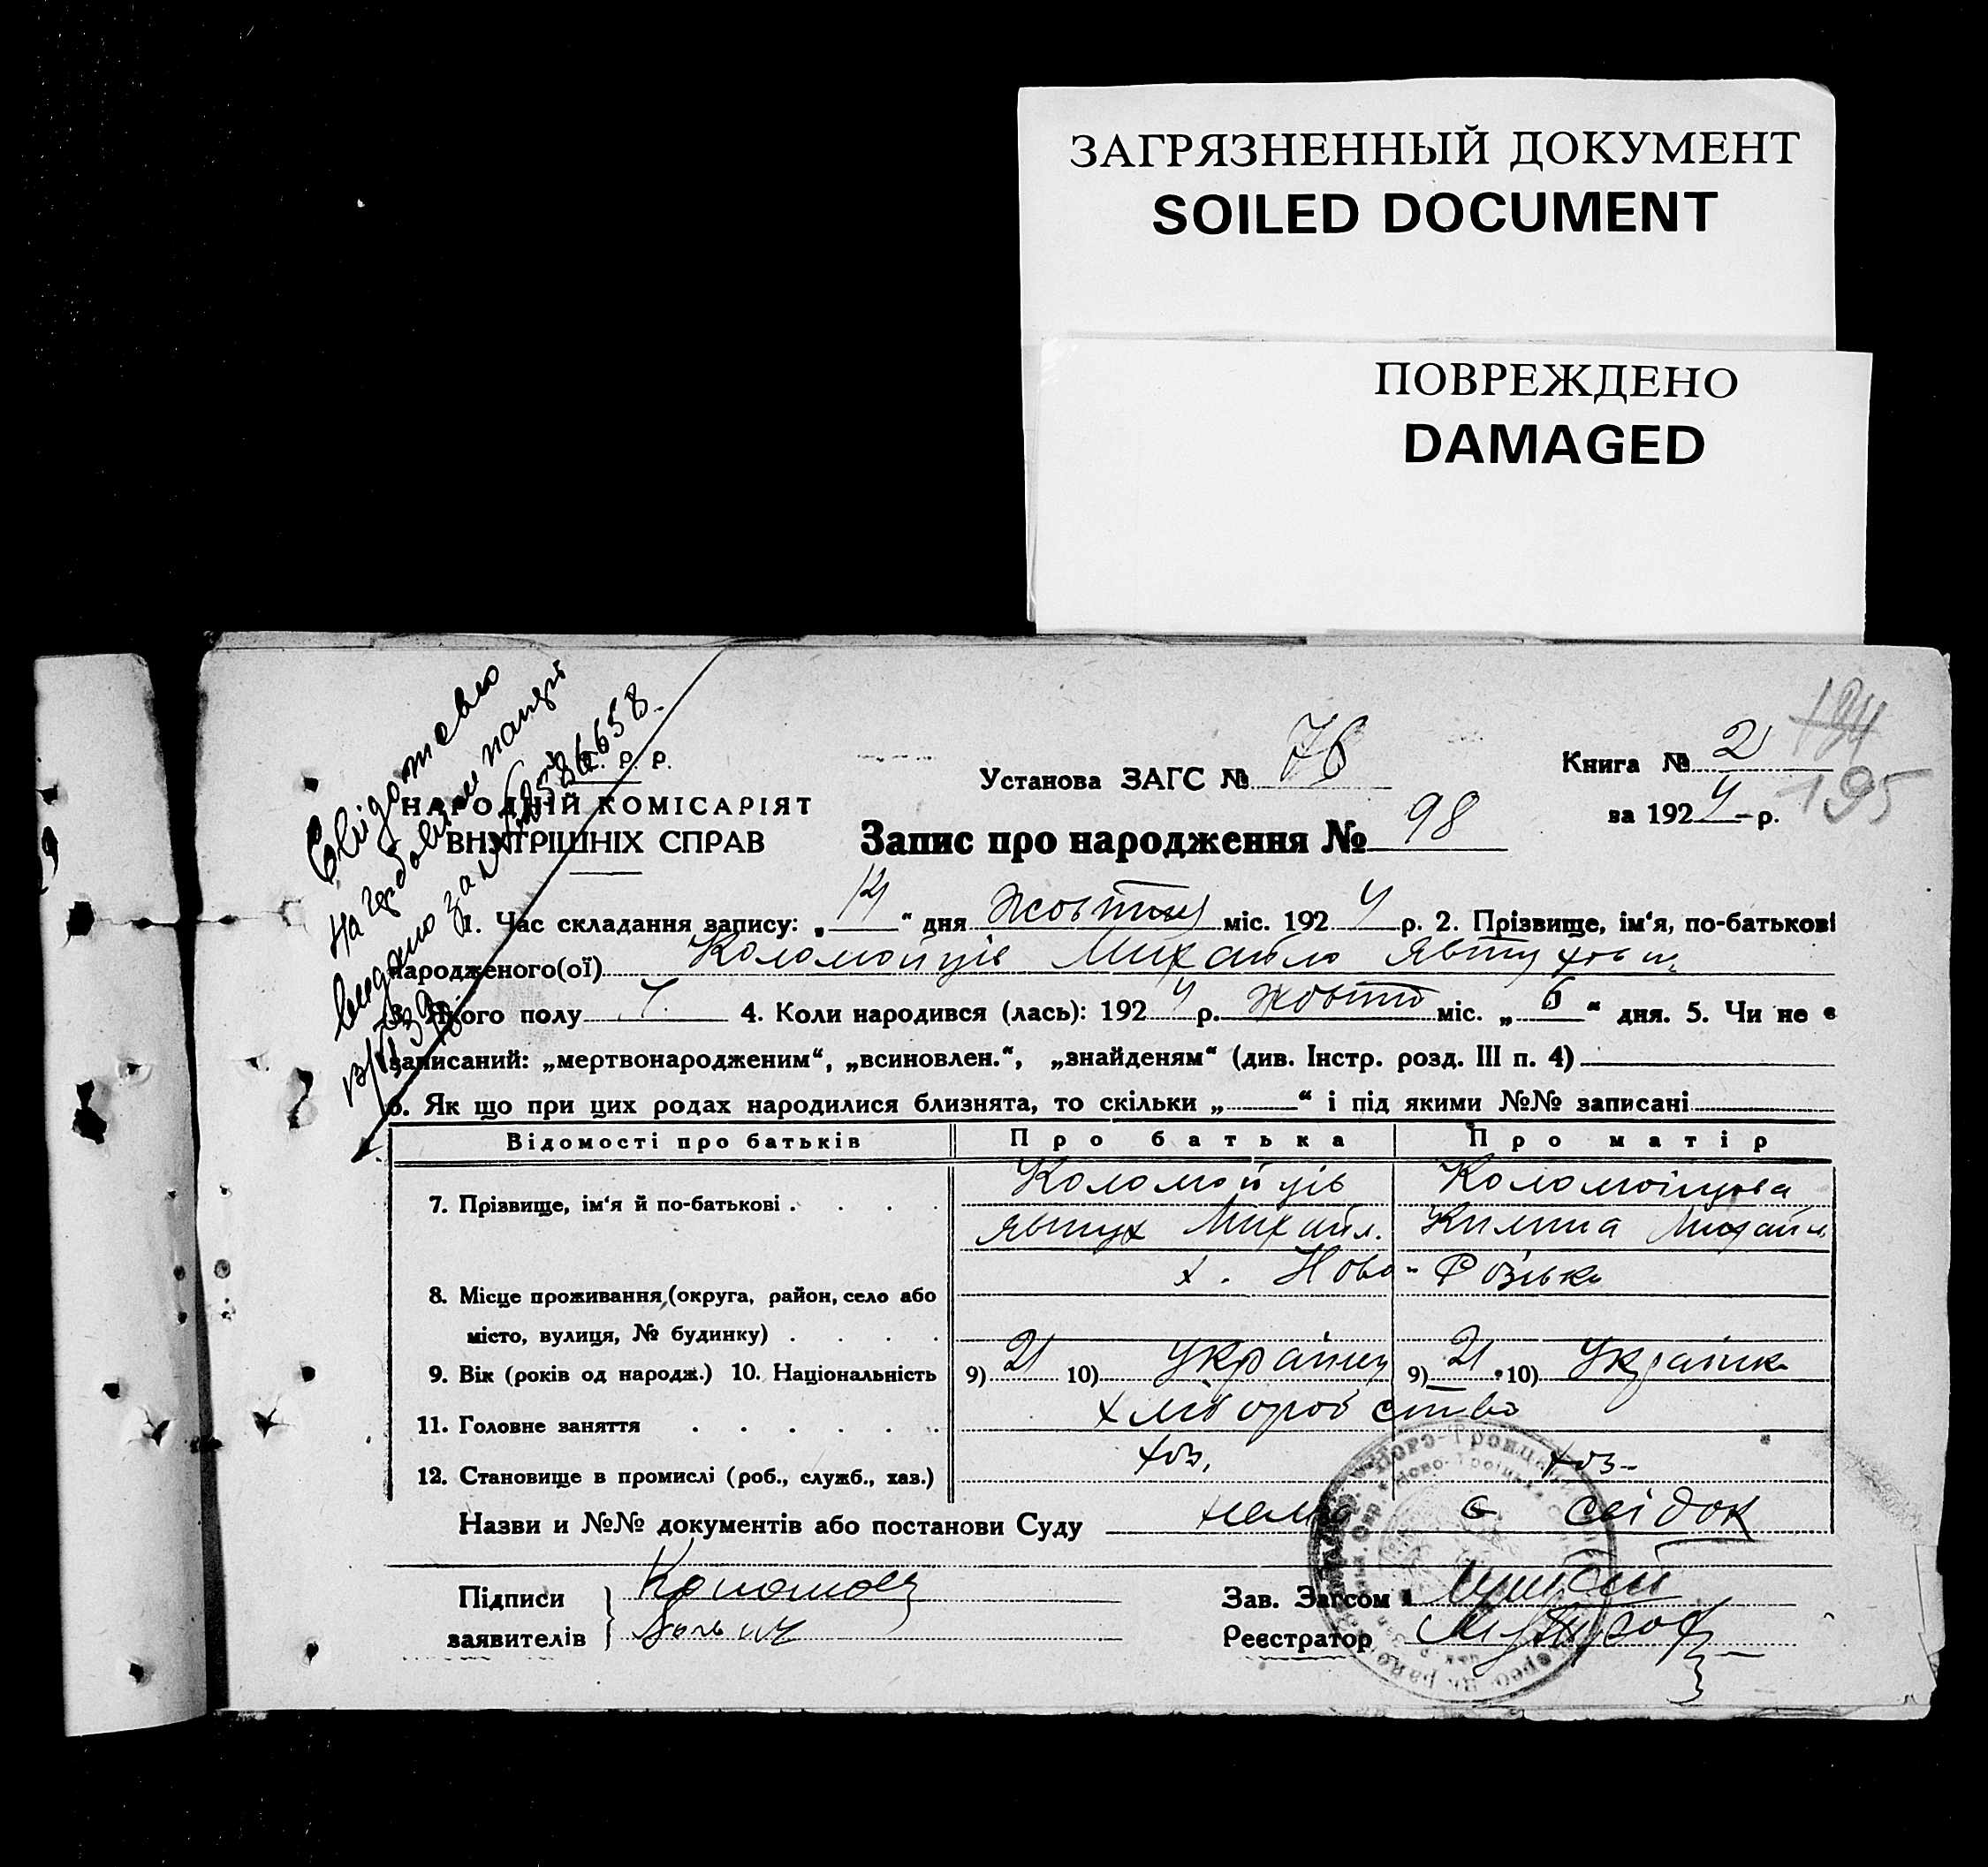 ЗАГРЯЗНЕННЫЙ ДОКУМЕНТ
SOILED DOCUMENT
ПОВРЕЖДЕНО
DAMAGED
Свідоцтво
на гербовім папері
видано за № 586658.
Р. Р.
НАРОДНІЙ КОМІСАРІЯТ
ВНУТРІШНІХ СПРАВ
Установа ЗАГС № 76
Книга № 2
194
195
за 1924 р.
Запис про народження № 98
1. Час складання запису: „14“ дня жовтня міс. 1924 р. 2. Прізвище, ім‘я, по-батькові
народженого(ої) Коломойців Михайло Явтухов
3. Якого полу Ч. 4. Коли народився (лась): 1924 р. жовтня міс. „6“ дня. 5. Чи не є
записаний: „мертвонародженим“, „всиновлен.“, „знайденям“ (див. Інстр. розд. III п. 4)
6. Як що при цих родах народилися близнята, то скільки „ “ і під якими №№ записані
Відомості про батьків Про батька Про матір
7. Прізвище, ім‘я й по-батькові Коломойців Коломойцева
Явтух Михайл. Килина Михайл.
х. Ново-
8. Місце проживання (округа, район, село або
місто, вулиця, № будинку)
9. Вік (років од народж.) 10. Національність 9) 21 10) Українец 9) 21 10) Українка
11. Головне заняття хліборобство
12. Становище в промислі (роб., служб., хаз.) хоз. хоз.
Назви и №№ документів або постанови Суду нема є свідок
Підписи
заявителів
Зав. Загсом
Реєстратор